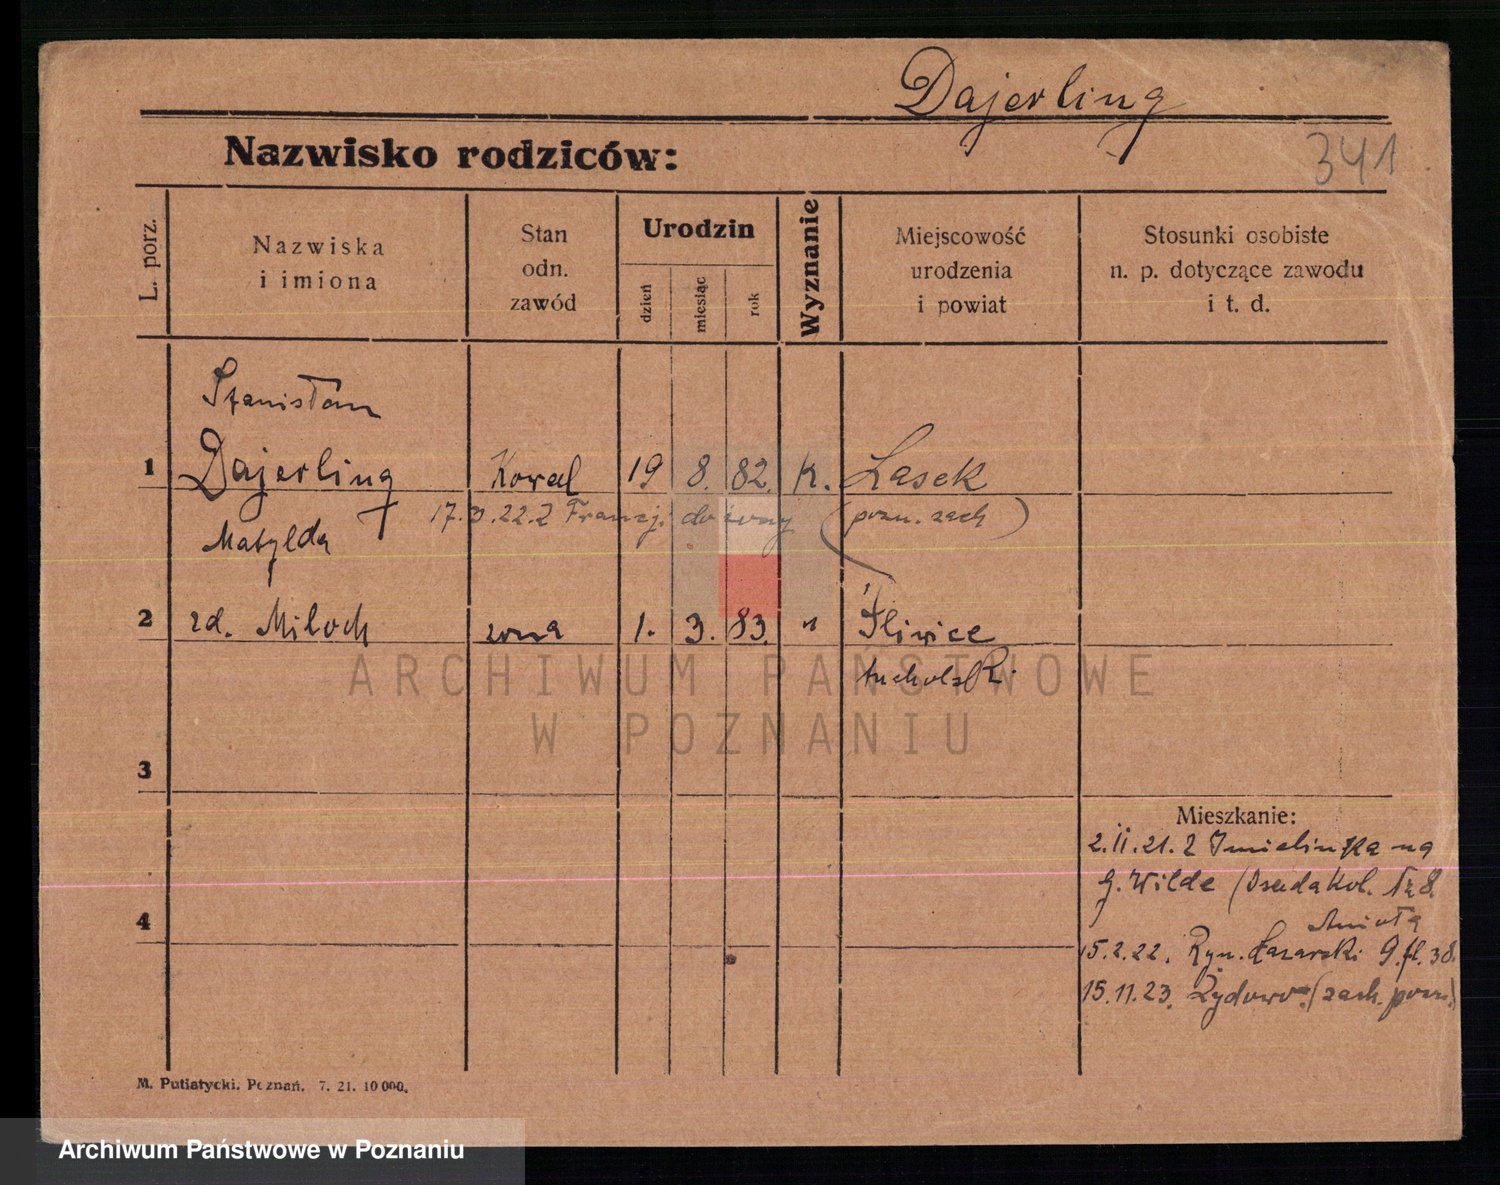 Dajerling
Nazwisko rodziców:
341
L. porz.
Nazwiska
i imiona
Stan
odn.
zawód
Urodzin
dzień
miesiąc
rok
Wyznanie
Miejscowość
urodzenia
i powiat
Stosunki osobiste
n. p. dotyczące zawodu
i t. d.
Stanisław
1 Dajerling Kowal 19 8. 82. K. Lasek
17.3.22. z Francj. do żony (pozn. zach)
Matylda
2 zd. Miloch żona 1. 3. 83. " Śliwice
tucholski
ARCHIWUM PAŃSTWOWE
W POZNANIU
3
Mieszkanie:
2.II.21. z Imielinka na
G. Wilde (Osada Kol. № 8.
4 Anioła
15.2.22. Ryn. Łazarski 9. fl. 38.
15.11.23. Żydowo (zach. pozn.)
M. Putiatycki, Poznań. 7. 21. 10 000.
Archiwum Państwowe w Poznaniu